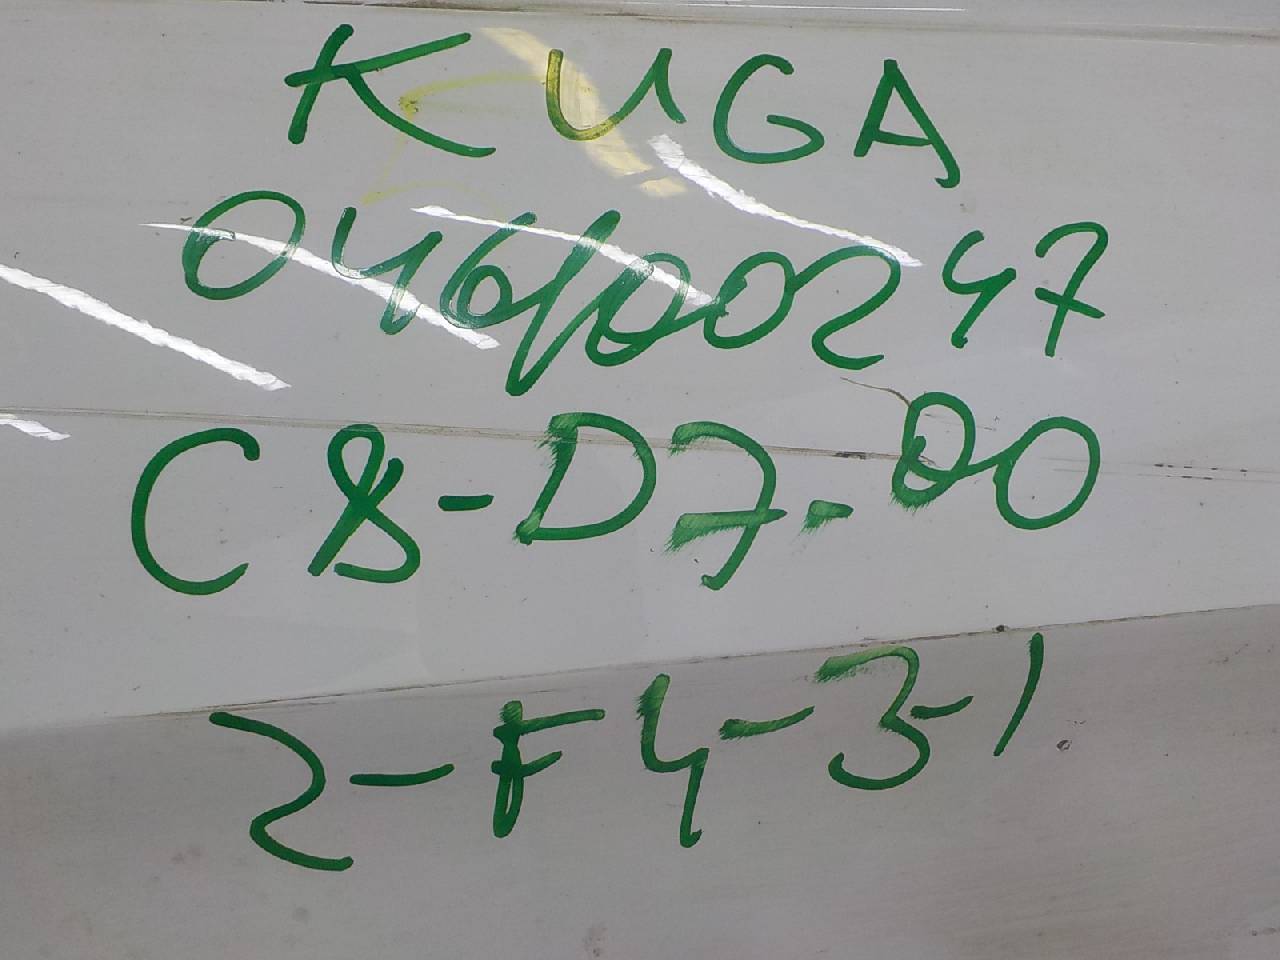 KUGA
046/00247
C8-D7-00
2-F4-3-1